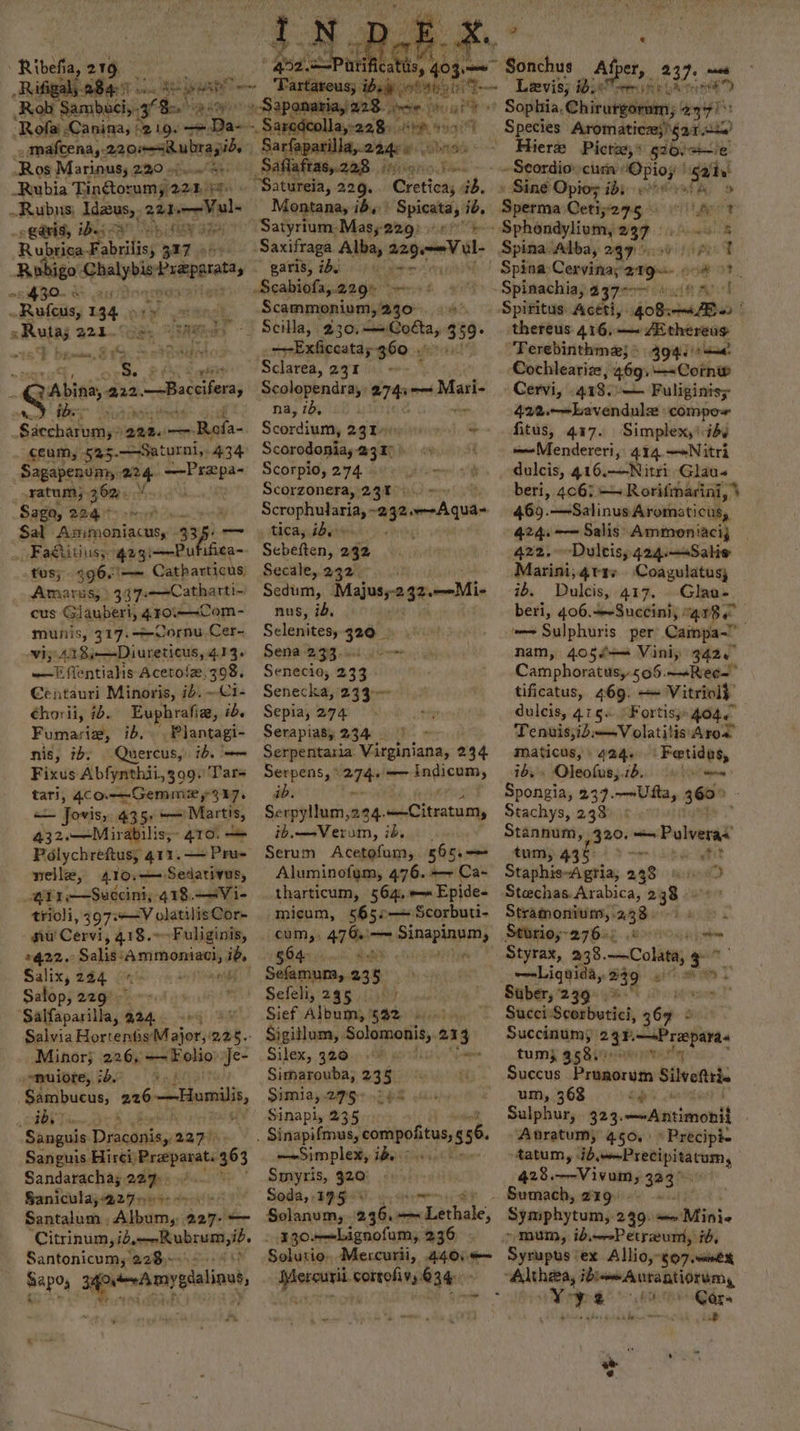 I N D E X.
Ribesia, 219
Rob Sambuci, 378.
Rosa Canina, 219. — Da-
mascena, 220.—Rubra, ib.
Ros Marinus, 220
Rubia Tinctorum, 221
Rubus Idæus, 221.—Vul-
garis, ib.
Rubrica Fabrilis, 317
Rubigo Chalybis Præparata,
430.
Ruscus, 134
Ruta, 221.
S.
Sabina, 222.—Baccifera,
ib.
Saccharum, 222. — Rosa-
ceum, 525.—Saturni, 434
Sagapenum, 224. —Præpa-
ratum, 362.
Sago, 224
Sal Ammoniacus, 335. —
Factitius, 423.—Purifica-
tus, 396.— Catharticus
Amarus, 337.—Catharti-
cus Glauberi, 410.—Com-
munis, 317.—Cornu Cer-
vi, 418.—Diureticus, 413.
—Essentialis Acetosæ, 398.
Centauri Minoris, ib.—Ci-
chorii, ib. Euphrasiæ, ib.
Fumariæ, ib. Plantagi-
nis, ib. Quercus, ib. —
Fixus Absynthii, 399. Tar-
tari, 400.—Gemmæ, 317.
— Jovis, 435. — Martis,
432.—Mirabilis, 410. —
Polychrestus, 411. — Pru-
nellæ, 410. — Sedativus,
411.—Succini, 418.—Vi-
trioli, 397.—Volatilis Cor-
nu Cervi, 418.—Fuliginis,
422. Salis Ammoniaci, ib.
Salix, 224
Salop, 229
Salsaparilla, 224
Salvia Hortensis Major, 225.
Minor, 226. — Folio Je-
nuiore, ib.
Sambucus, 226—Humilis,
ib.
Sanguis Draconis, 227
Sanguis Hirci Præparat. 363
Sandaracha, 227
Sanicula, 227
Santalum Album, 227. —
Citrinum, ib.—Rubrum, ib.
Santonicum, 228.
Sapo, 340.—Amygdalinus,
402.—Purificatus, 403.—
Tartareus, ib.
Saponaria, 228.
Sarcocolla, 228
Sarsaparilla, 224
Sassafras, 228
Satureia, 229. Cretica, ib.
Montana, ib. Spicata, ib.
Satyrium Mas, 229
Saxifraga Alba, 229.—Vul-
garis, ib.
Scabiosa, 229
Scammonium, 230
Scilla, 230.—Cocta, 359.
—Exsiccata, 360
Sclarea, 231
Scolopendra, 274. — Mari-
na, ib.
Scordium, 231
Scorodonia, 231
Scorpio, 274
Scorzonera, 231
Scrophularia, 232.—Aqua-
tica, ib.
Sebesten, 232
Secale, 232
Sedum, Majus, 232.—Mi-
nus, ib.
Selenites, 320
Sena 233
Senecio, 233
Senecka, 233
Sepia, 274
Serapias, 234
Serpentaria Virginiana, 234
Serpens, 274. — Indicum,
ib.
Serpyllum, 234.—Citratum,
ib.—Verum, ib.
Serum Acetosum, 565.—
Aluminosum, 476. — Ca-
tharticum, 564. — Epide-
micum, 565.— Scorbuti-
cum, 476. — Sinapinum,
564
Sesamum, 235
Seseli, 235
Sief Album, 522
Sigillum, Solomonis, 213
Silex, 320
Simarouba, 235
Simia, 275
Sinapi, 235
Sinapismus, compositus, 556.
—Simplex, ib.
Smyris, 320
Soda, 195
Solanum, 236. — Lethale,
130.—Lignosum, 236
Solutio Mercurii, 440. —
Mercurii corrosiv. 634
Sonchus Asper, 237. —
Lævis, ib.
Sophia Chirurgorum, 237
Species Aromaticæ, 521.—
Hieræ Pictæ, 520.—e
Scordio cum Opio, 521.
Sine Opio, ib.
Sperma Ceti, 275
Sphondylium, 237
Spina Alba, 237
Spina Cervina, 219
Spinachia, 237
Spiritus Aceti, 408.—Æ-
thereus 416. — Æthereus
Terebinthinæ, 394. —
Cochleariæ, 469.—Cornu
Cervi, 418. — Fuliginis,
422.—Lavendulæ compo-
situs, 417. Simplex, ib.
—Mendereri, 414.—Nitri
dulcis, 416.—Nitri Glau-
beri, 406. — Rorismarini,
469.—Salinus Aromaticus,
424. — Salis Ammoniaci,
422. Dulcis, 424.—Salis
Marini, 411. Coagulatus,
ib. Dulcis, 417. Glau-
beri, 406.—Succini, 418.
— Sulphuris per Campa-
nam, 405.— Vini, 342.
Camphoratus, 506.—Rec-
tificatus, 469. — Vitrioli
dulcis, 415. Fortis, 404.
Tenuis, ib.—Volatilis Aro-
maticus, 424. Fœtidus,
ib. Oleosus, ib.
Spongia, 237.—Usta, 360
Stachys, 238
Stannum, 320. — Pulvera-
tum, 435
Staphis-Agria, 238
Stœchas Arabica, 238
Stramonium, 238
Sturio, 276
Styrax, 238.—Colata,
—Liquida, 239
Suber, 239
Succi Scorbutici, 367
Succinum, 231.—Præpara-
tum, 358.
Succus Prunorum Silvestri-
um, 368
Sulphur, 323.—Antimonii
Auratum, 450. Precipi-
tatum, ib.—Precipitatum,
428.—Vivum, 323
Sumach, 219
Symphytum, 239. — Mini-
mum, ib.—Petræum, ib.
Syrupus ex Allio, 507.—ex
Althæa, ib.—Aurantiorum,
Y y 2
Car-